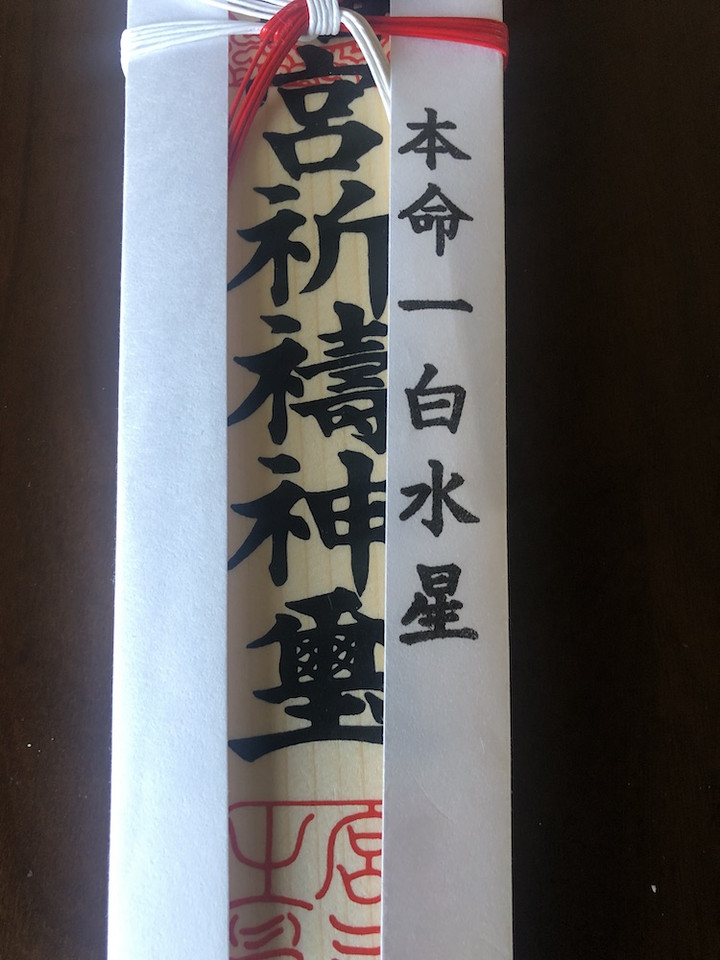 本命一白水星
宮祈禱神璽